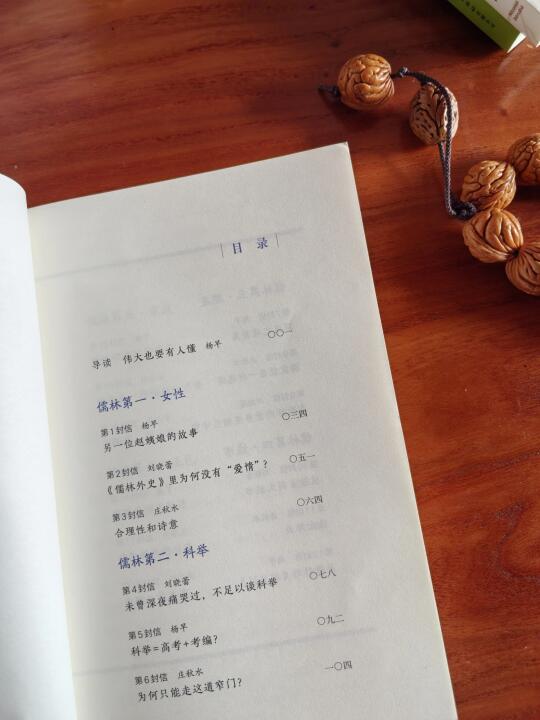 目 录
导读 伟大也要有人懂 杨早 〇〇一
儒林第一·女性
第1封信 杨早
另一位赵姨娘的故事 〇三四
第2封信 刘晓蕾
《儒林外史》里为何没有“爱情”？ 〇五一
第3封信 庄秋水
合理性和诗意 〇六四
儒林第二·科举
第4封信 刘晓蕾
未曾深夜痛哭过，不足以谈科举 〇七八
第5封信 杨早
科举=高考+考编？ 〇九二
第6封信 庄秋水
为何只能走这道窄门？ 一〇四